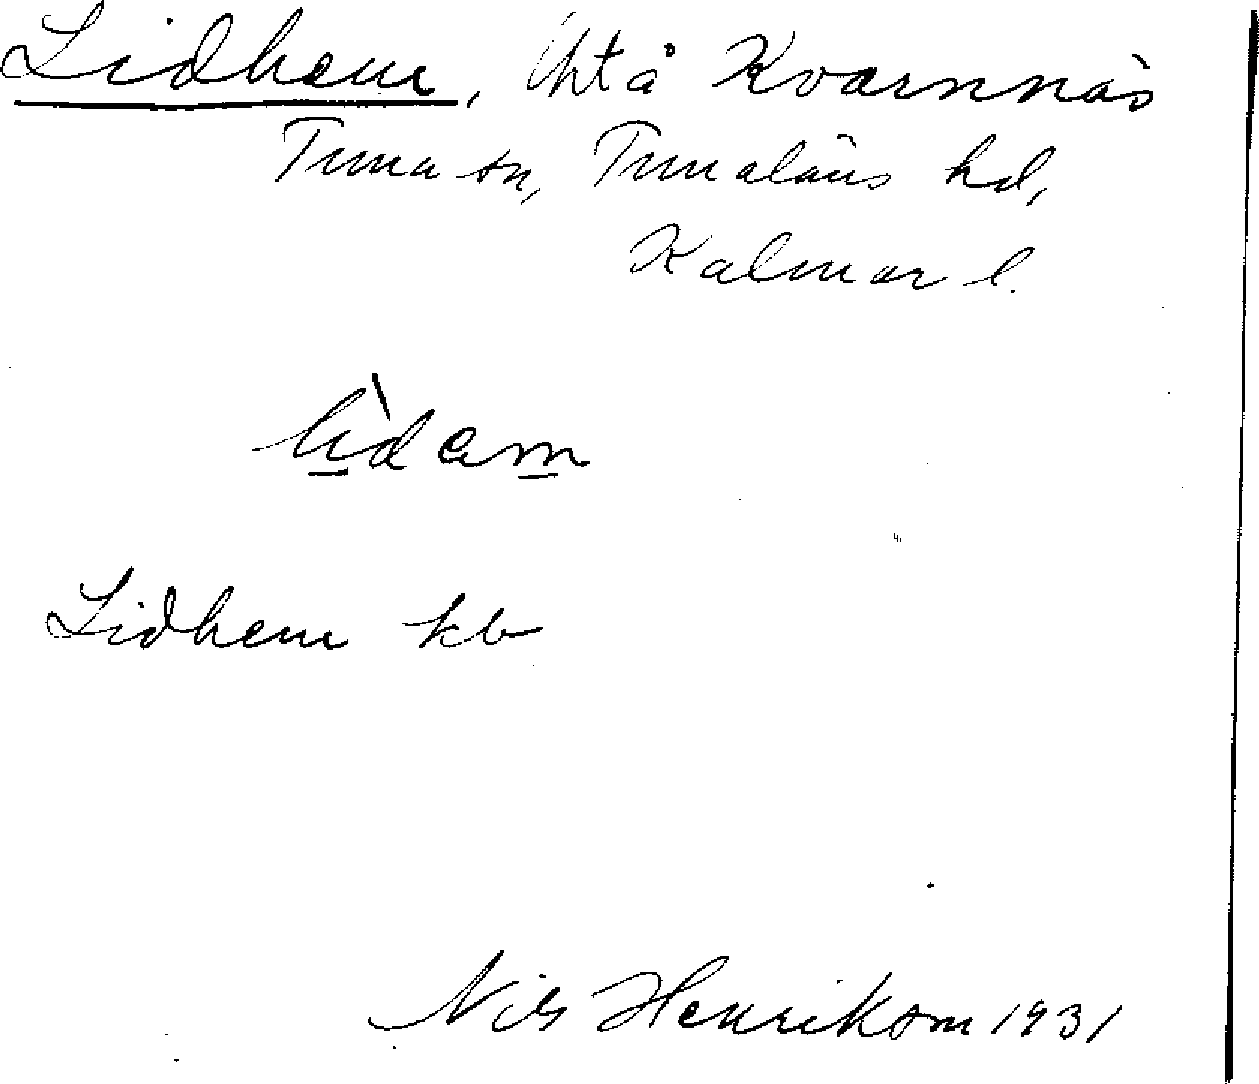 Lidhem, lht å Kvarnnäs
Tuna sn, Tunaläns hd,
Kalmar l.
lìdam
Lidhem kb
Nils Henrikson 1931